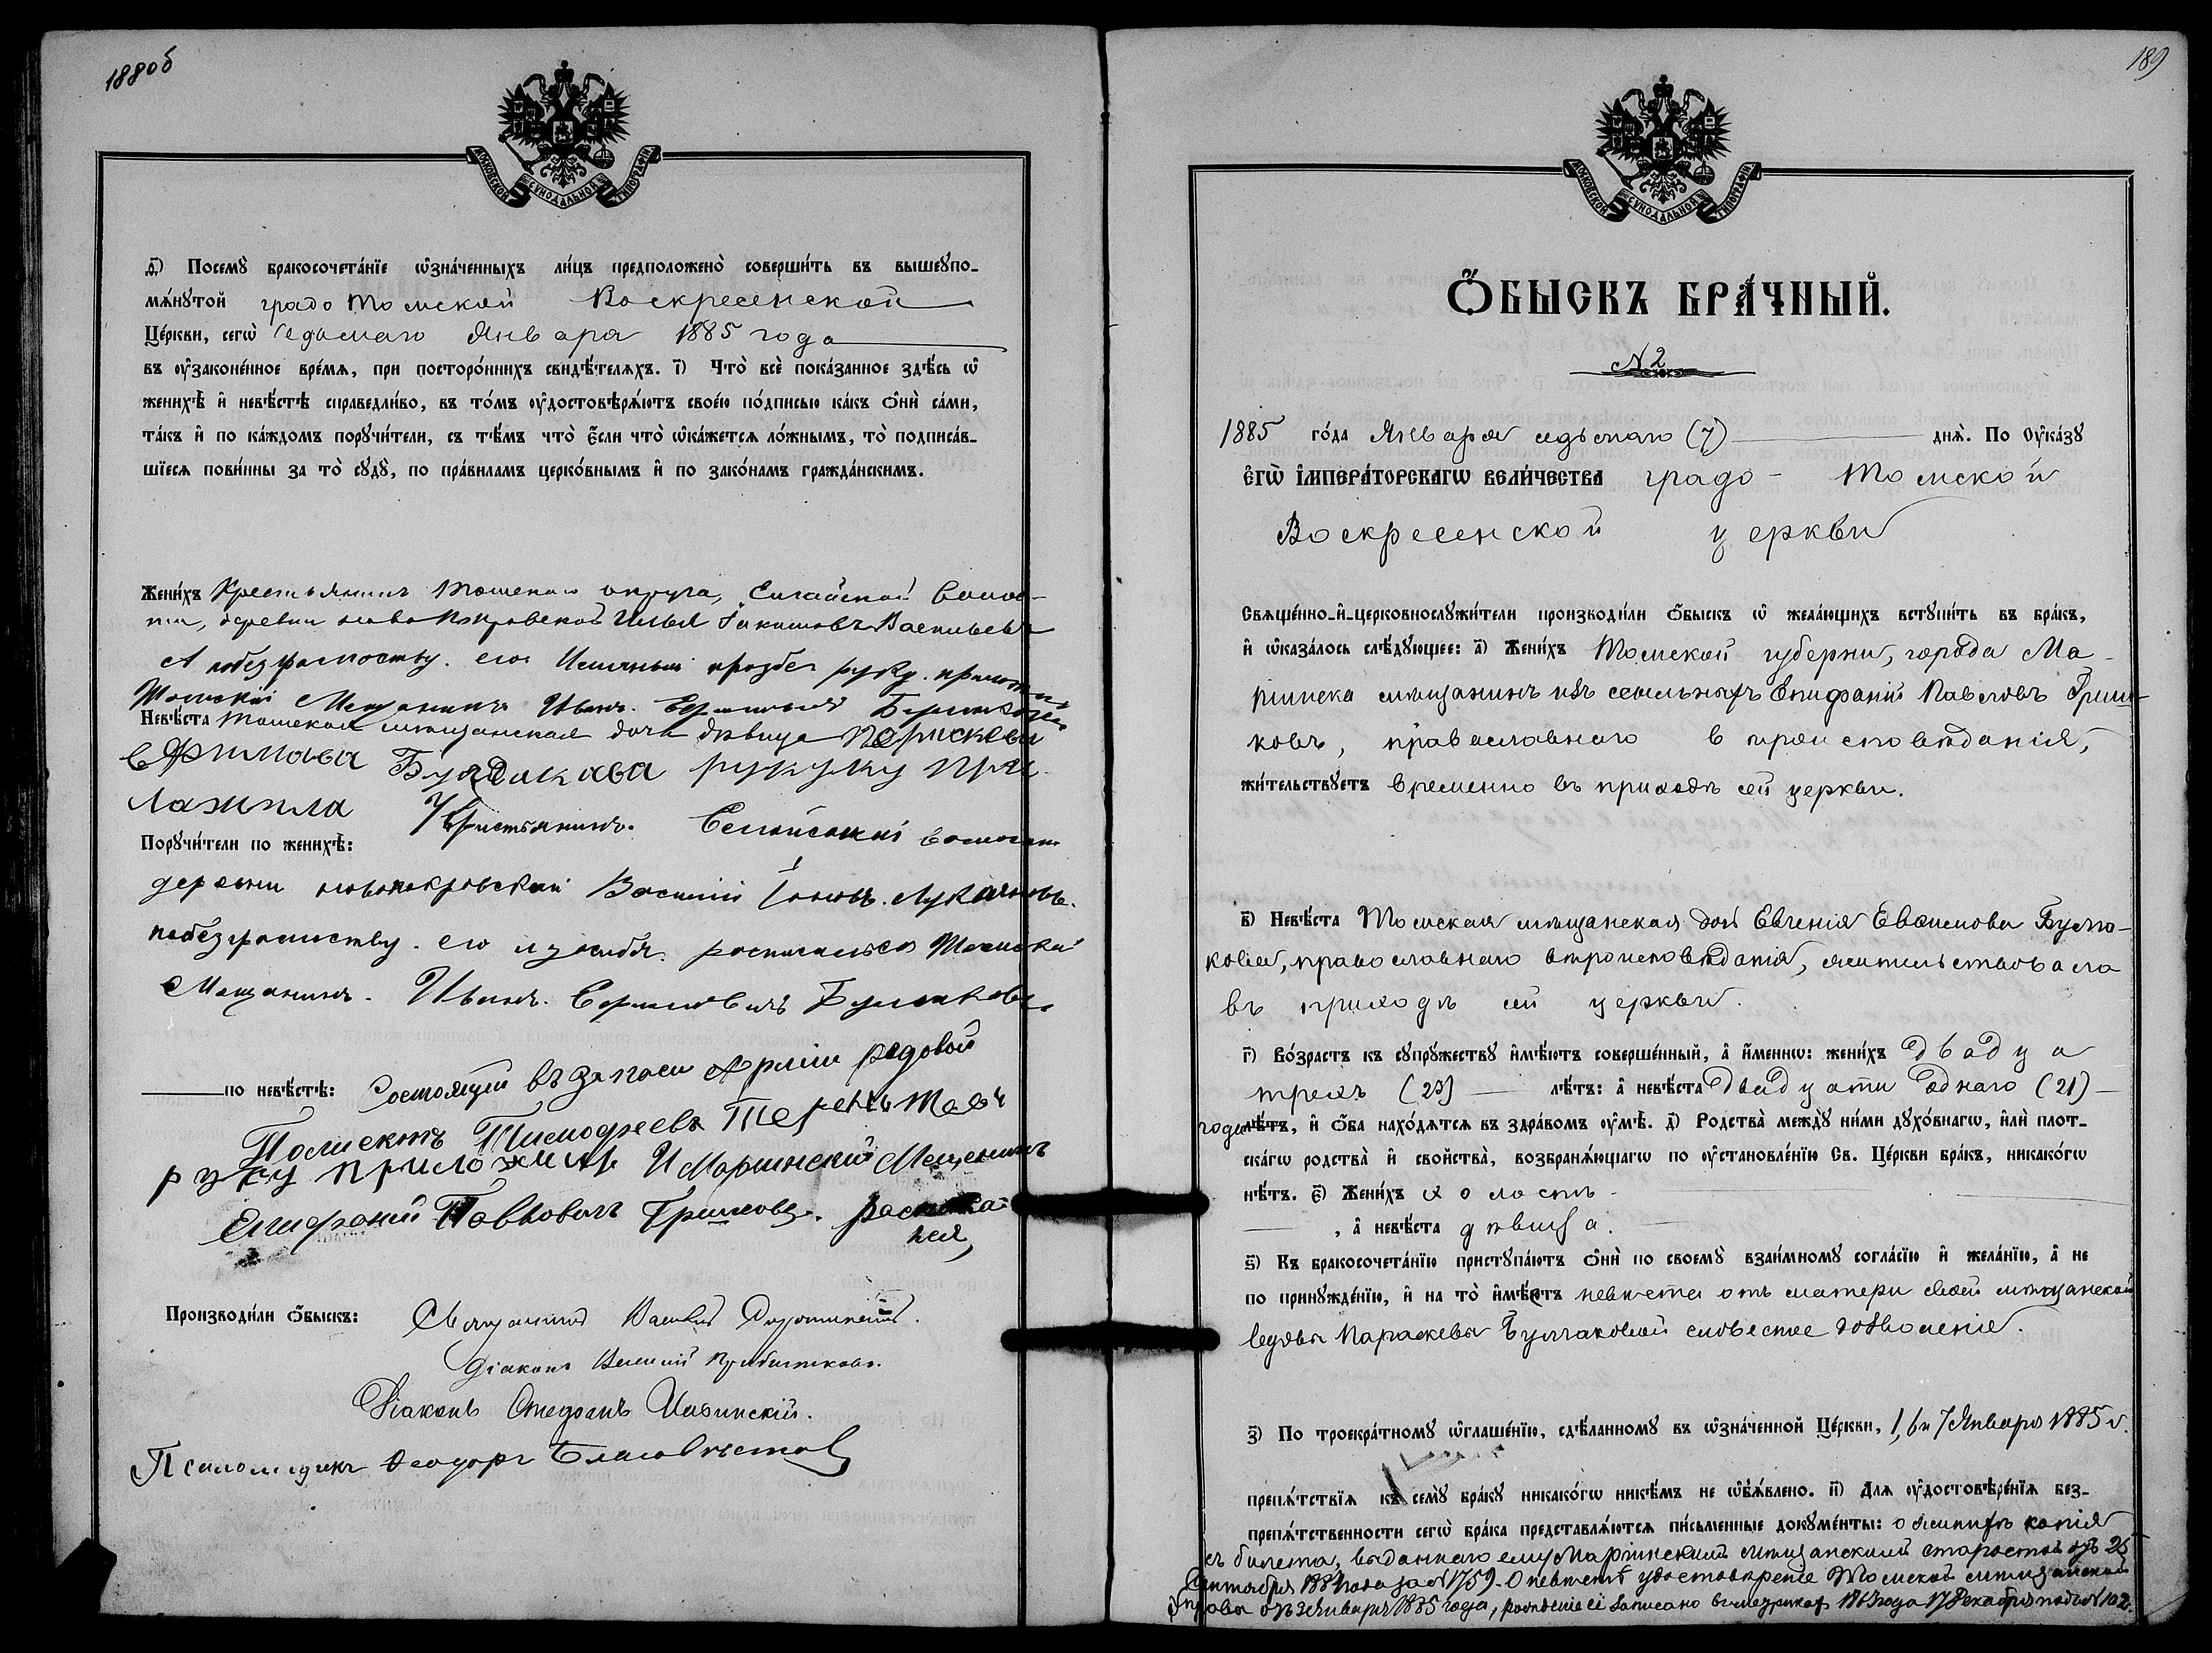 188об
МОСКОВСКОЙ СУНОДАЛЬНОЙ ТИПОГРАФІИ
д҃і) Посемꙋ̀ бракосочета́нїе ѡ҆зна́ченныхъ ли́цъ предположено̀ соверши́ть въ вышеꙋпо-
мѧ́нꙋтой градо Томской Воскресенской
Це́ркви, сегѡ̀ седьмаго Января 1885 года
въ ᲂу҆законе́нное вре́мѧ, при посторо́ннихъ свидѣ́телѧхъ. і҃) Что̀ всѐ пока́занное здѣ́сь ѡ҆
женихѣ̀ и҆ невѣ́стѣ справедли́во, въ то́мъ ᲂу҆достовѣрѧ́ютъ свое́ю по́дписью ка́къ ѻ҆нѝ са́ми,
та́къ и҆ по ка́ждомъ порꙋчи́тели, съ тѣ́мъ что̀ є҆́сли что̀ ѡ҆ка́жетсѧ ло́жнымъ, то̀ подписа́в-
шїесѧ пови́нны за то̀ сꙋдꙋ̀, по пра́виламъ церко́внымъ и҆ по зако́намъ гражда́нскимъ.
Жени́хъ Крестьянинъ Томскаго округа, волос-
ти, деревни ново Покровской Илья Васильевъ
А побезграмоству его прозбе руку приложилъ
Томскій Мещанинъ Иванъ
Невѣ́ста Томская мѣщанская дочь дѣвица
Ефимова руку при
ложила Кристьянинъ волости
Порꙋчи́тели по женихѣ̀:
деревни новопокровский Василий
побезграмоству его росписался Томский
Мещанинъ Иванъ
по невѣ́стѣ: Состоящий въ запаси Арміи рядовой
Тимофеевъ
руку приложилъ И Мариинский Мещенинъ
Епифаний Павловичъ
Производи́ли ѻ҆́быскъ: Священникъ Василій
Діаконъ Василій
Діаконъ Стефанъ
Псаломщикъ Ѳеодоръ Благовѣстов
189
МОСКОВСКОЙ СУНОДАЛЬНОЙ ТИПОГРАФІИ
Ѻ҆́БЫСКЪ БРА́ЧНЫЙ.
№ 2
1885 го́да Января седьмаго (7) днѧ̀. По Оу҆ка́зꙋ
Є҆ГѠ̀ І҆МПЕРА́ТОРСКАГѠ ВЕЛИ́ЧЕСТВА градо - Томской
Воскресенской церкви
Свѧще́нно-и҆-церковнослꙋжи́тели производи́ли ѻ҆́быскъ ѡ҆ жела́ющихъ встꙋпи́ть въ бра́къ,
и҆ ѡ҆каза́лось слѣ́дꙋющее: а҃) Жени́хъ Томской губерніи, города Ма-
ріинска мѣщанинъ изъ ссыльныхъ Епифаній Павловъ Гриш-
ковъ, православнаго вѣроисповѣданія,
жи́тельствꙋетъ временно въ приходѣ сей церкви.
в҃) Невѣ́ста Томская мѣщанская дочь Евгенія Евѳимова Булга-
кова, православнаго вѣроисповѣданія, жительствовала
въ приходѣ сей церкви.
г҃) Во́зрастъ къ сꙋпрꙋ́жествꙋ и҆мѣ́ютъ соверше́нный, а҆ и҆́менно: жени́хъ двадца
трехъ (23) лѣ́тъ: а҆ невѣ́ста двадцати однаго (21)
года лѣ́тъ, и҆ ѻ҆́ба нахо́дѧтсѧ въ здра́вомъ ᲂу҆мѣ̀. д҃) Родства̀ междꙋ̀ ни́ми дꙋхо́внагѡ, и҆лѝ плот-
ска́гѡ родства̀ и҆ свойства̀, возбранѧ́ющагѡ по ᲂу҆становле́нїю Св. Це́ркви бра́къ, никако́гѡ
нѣ́тъ. є҃) Жени́хъ холостъ
, а҆ невѣ́ста дѣвица.
ѕ҃) Къ бракосочета́нїю пристꙋпа́ютъ ѻ҆нѝ по своемꙋ̀ взаи́мномꙋ согла́сїю и҆ жела́нїю, а҆ не
по принꙋжде́нїю, и҆ на то̀ и҆мѣ́ютъ невѣста отъ матери своей мѣщанской
вдовы Параскевы Булгаковой словесное дозволеніе.
з҃) По троекра́тномꙋ ѡ҆глаше́нїю, сдѣ́ланномꙋ въ ѡ҆зна́ченной Це́ркви, 1, 6 и 7 Января 1885 г.
препѧ́тствїѧ къ семꙋ̀ бра́кꙋ никако́гѡ никѣ́мъ не ѡ҆б̾ѧ́влено. и҃) Длѧ ᲂу҆достовѣре́нїѧ без-
препѧ́тственности сегѡ̀ бра́ка представлѧ́ютсѧ пи́сьменные докꙋме́нты: о женихѣ копія
съ билета, выданнаго ему Маріинскимъ мѣщанскимъ старостой отъ 25
Сентября 1884 года за № 1759. О невѣстѣ удостовѣреніе Томской мѣщанской
Управы отъ Января 1885 года, рожденіе её записано в метрикахъ 1863 года 17 Декабря подъ № 102.